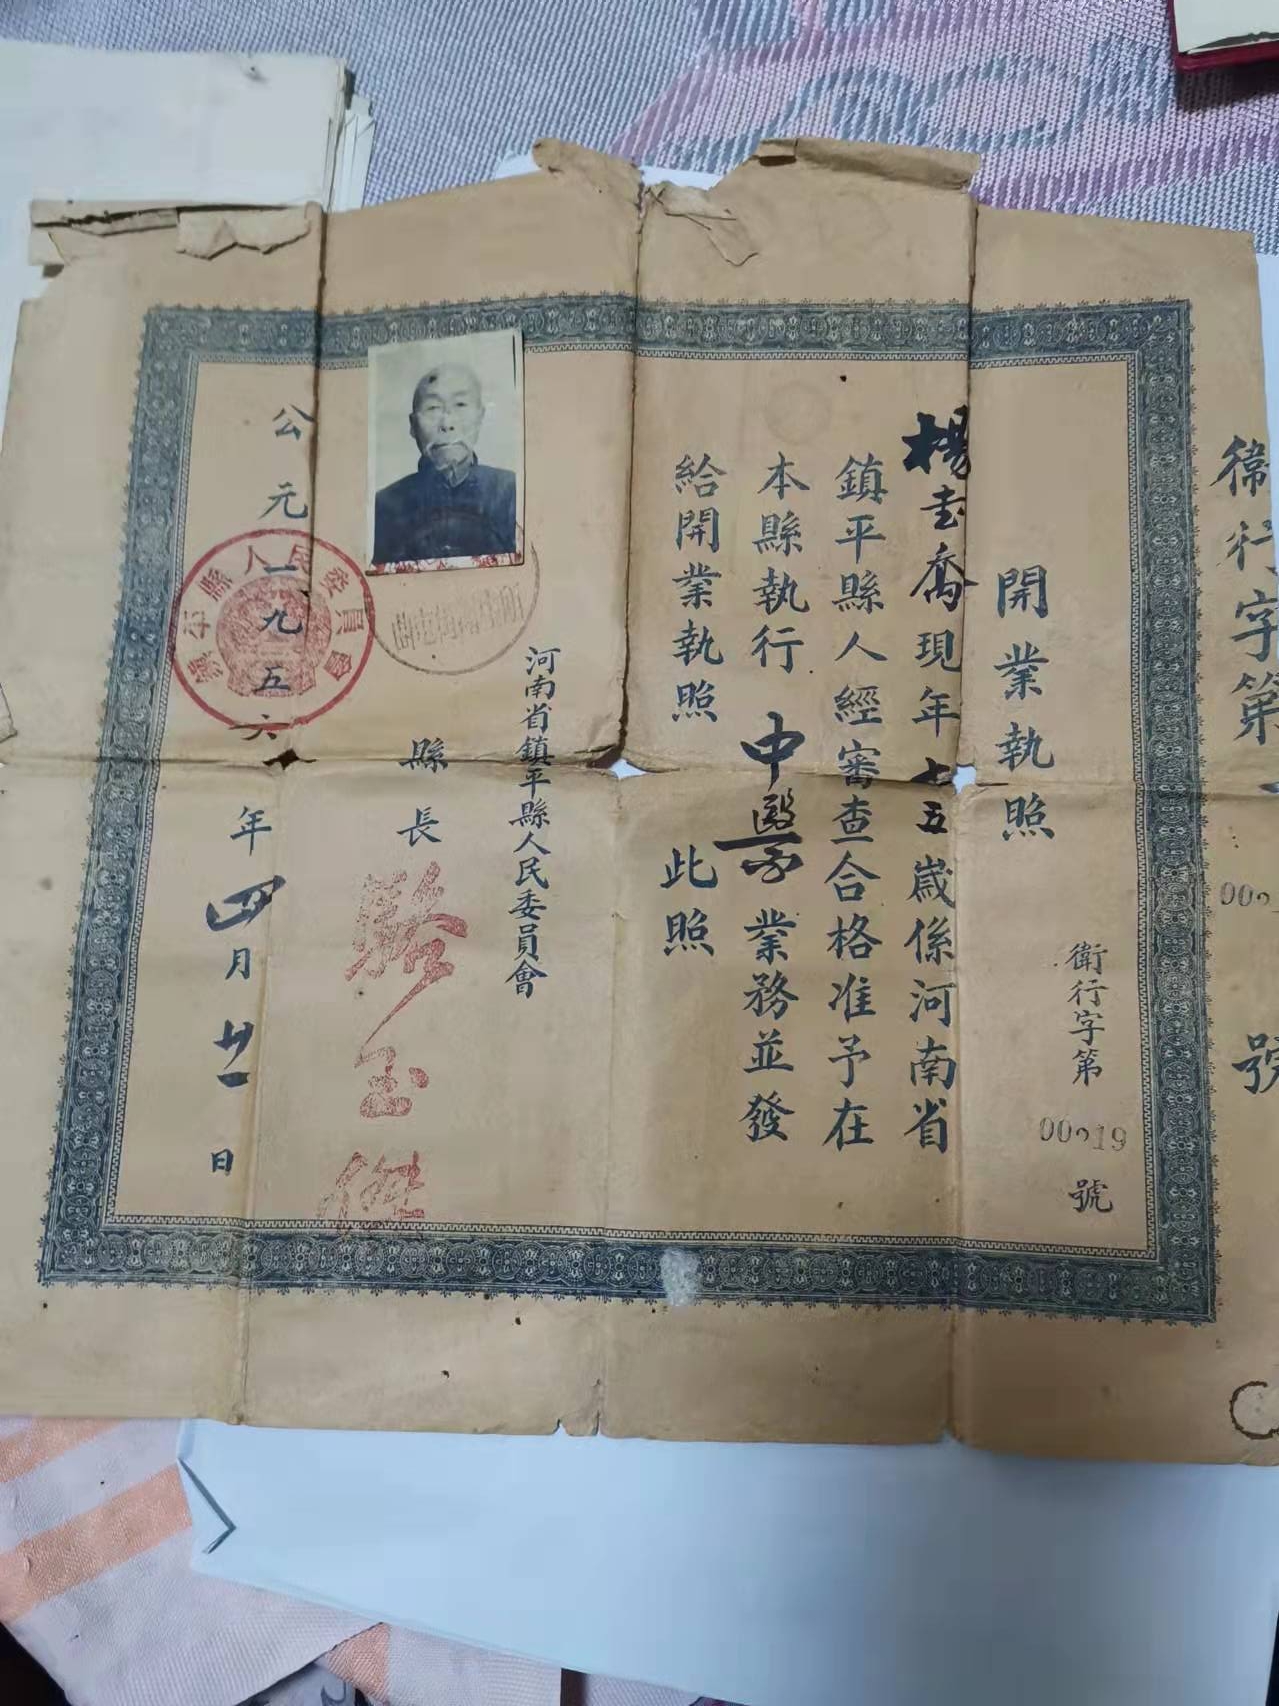 衛行字第
號
衛行字第
00019
號
開業執照
楊圭喬現年七五歲係河南省
鎮平縣人經審查合格准予在
本縣執行中醫業務並發
給開業執照此照
河南省鎮平縣人民委員會
縣長
公元一九五六年四月廿一日
鎮平縣人民委員會